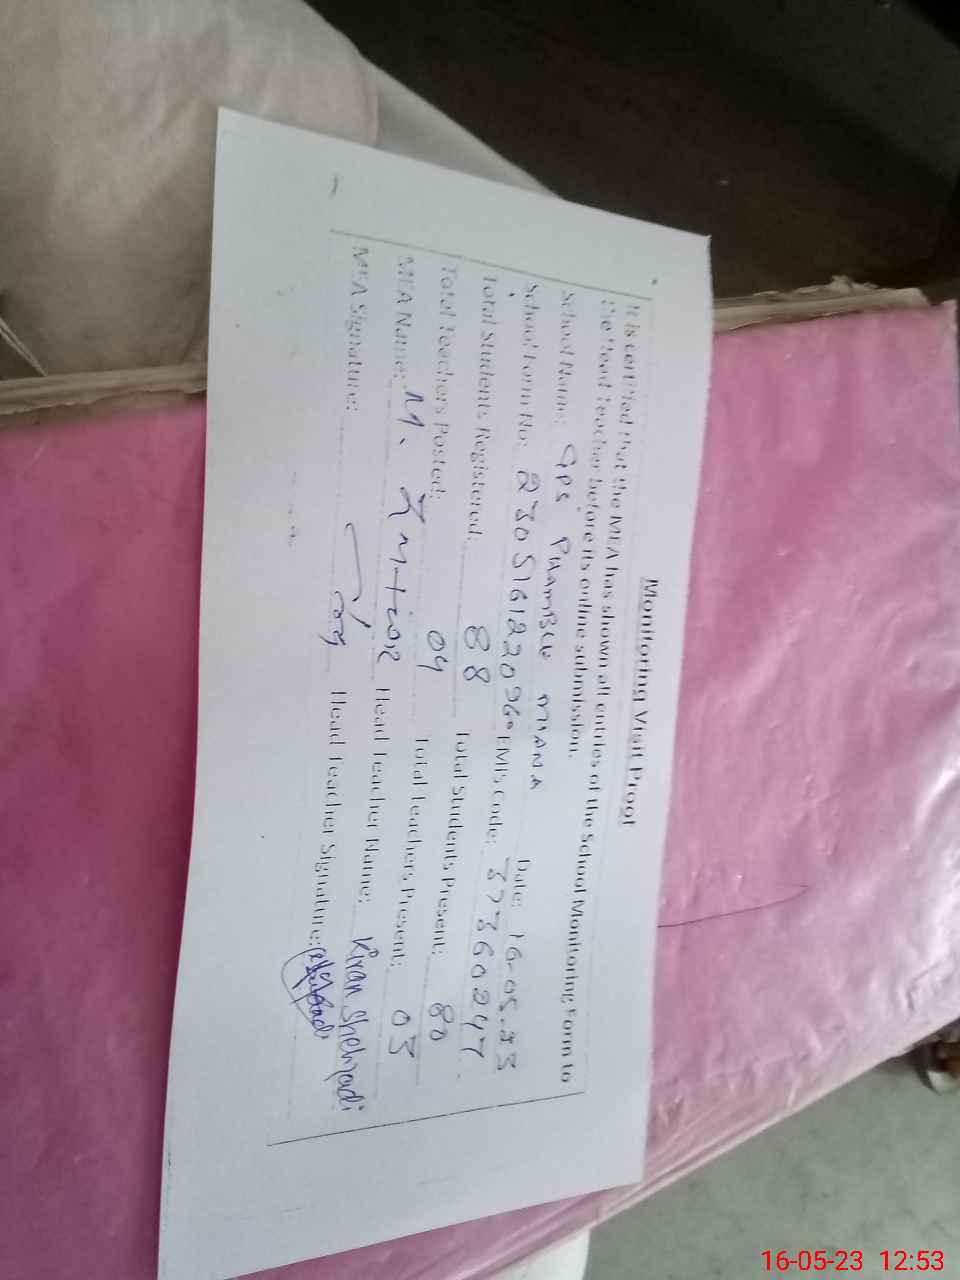 Monitoring Visit Proof
It is certified that the MEA has shown all entries of the School Monitoring Form to
the Head Teacher before its online submission.
School Name: GPS PHAMBLE MIANA Date: 16-05-23
School Form No: EMIS Code: 37360247
Total Students Registered: 88 Total Students Present: 80
Total Teachers Posted: 04 Total Teachers Present: 03
MEA Name: M. Head Teacher Name: Kiran Shehzadi
MEA Signature: Head Teacher Signature:
16-05-23 12:53